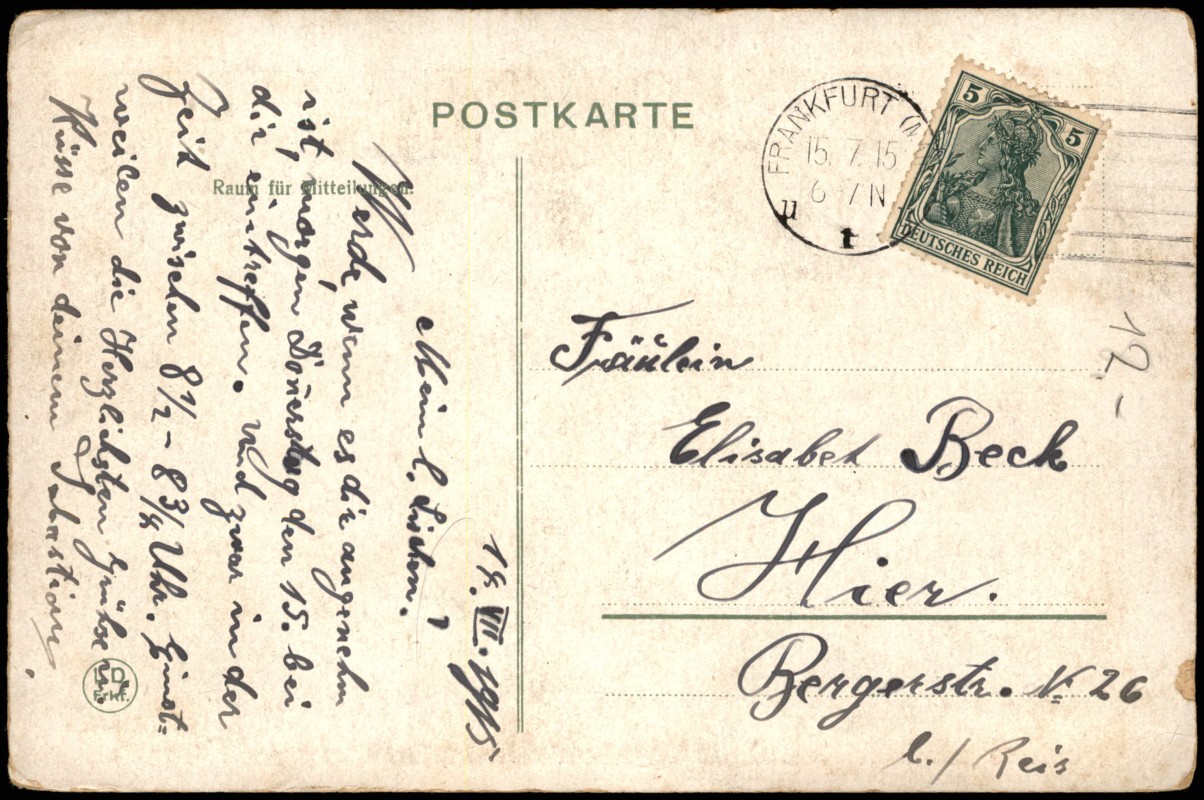 POSTKARTE
Raum für Mitteilungen.
14. VII. 1915
Mein l. Lischen!
Werde, wenn es dir angenehm
ist, morgen Donerstag den 15. bei
dir eintreffen. und zwar in der
Zeit zwischen 8 1/2 - 8 3/4 Uhr. Einst-
weilen die Herzlichsten Grüße u.
Küsse von deinem Sabastian
FRANKFURT (M
15. 7. 15
6-7 N
1
5
5
DEUTSCHES REICH
12.-
Fräulein
Elisabet Beck
Hier.
Bergerstr. N 26
b./Reis
Erkf.